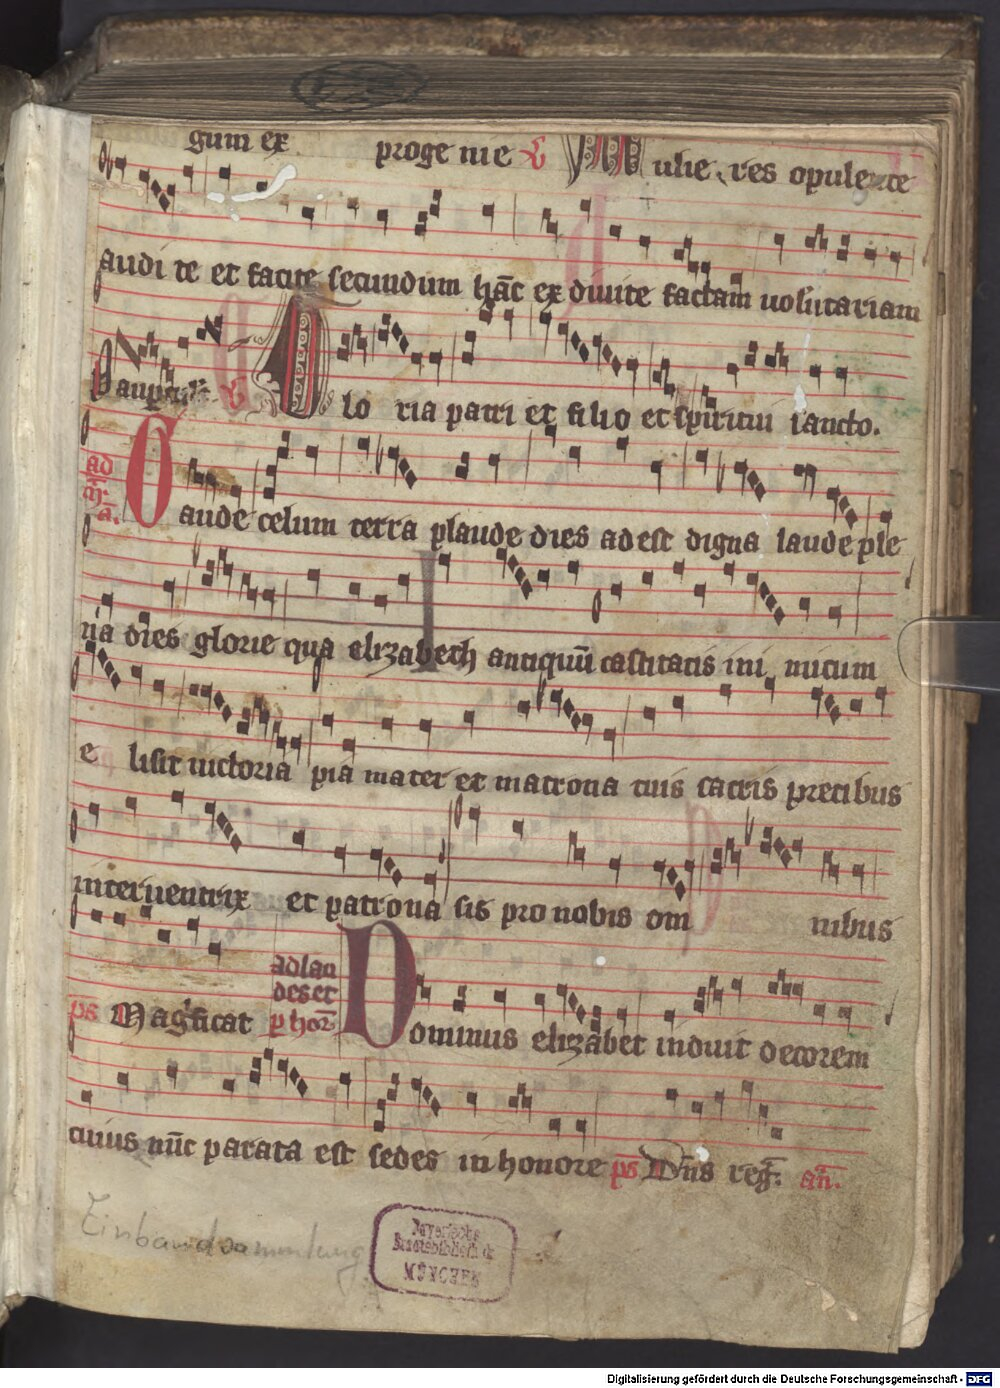 gum ex proge nie V Mulie res opulente
audi te et facite secundum hāc ex diuite factam uolūtariam
Paupercul. V Glo ria patri et filio et spiritui sancto.
ad m̄. ā. Gaude celum terra plaude dies adest digna laude ple
na dies glorie qua elizabeth antiquū castitatis ini micum
e lisit uictoria pia mater et matrona tuis sacris precibus
interuentrix et patrona sis pro nobis om nibus
ps Magficat ad lau des et p hor̄ Dominus elizabet induit decorem
cuius nūc parata est sedes in honore ps̄ Dn̄s reḡ. an̄.
Einbandsammlung
Bayerische
Staatsbibliothek
MÜNCHEN
Digitalisierung gefördert durch die Deutsche Forschungsgemeinschaft - DFG